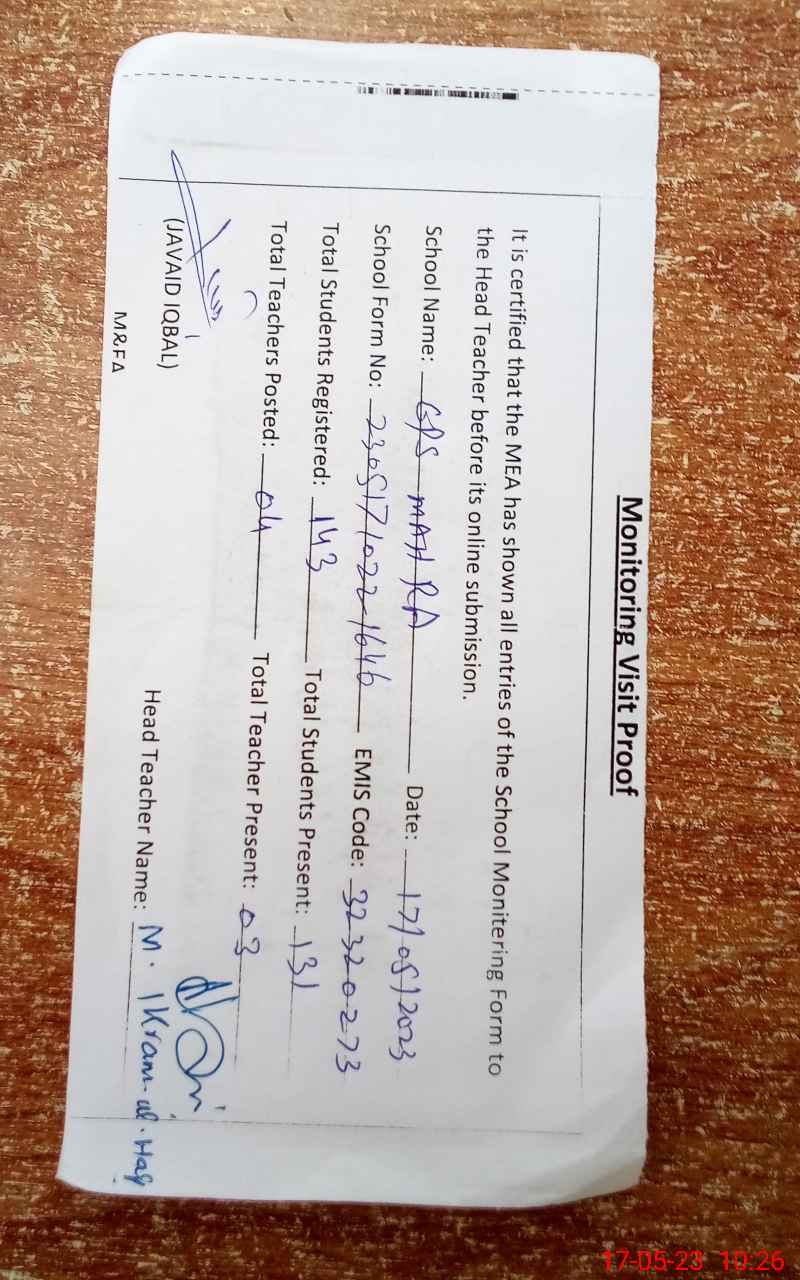 Monitoring Visit Proof
It is certified that the MEA has shown all entries of the School Monitering Form to
the Head Teacher before its online submission.
School Name: GPS MAHRA Date: 17/05/2023
School Form No: 23051710221646 EMIS Code: 32320273
Total Students Registered: 143 Total Students Present: 131
Total Teachers Posted: 04 Total Teacher Present: 03
(JAVAID IQBAL) Head Teacher Name: M. Ikram-ul-Haq
M&FA
17-05-23 10:26